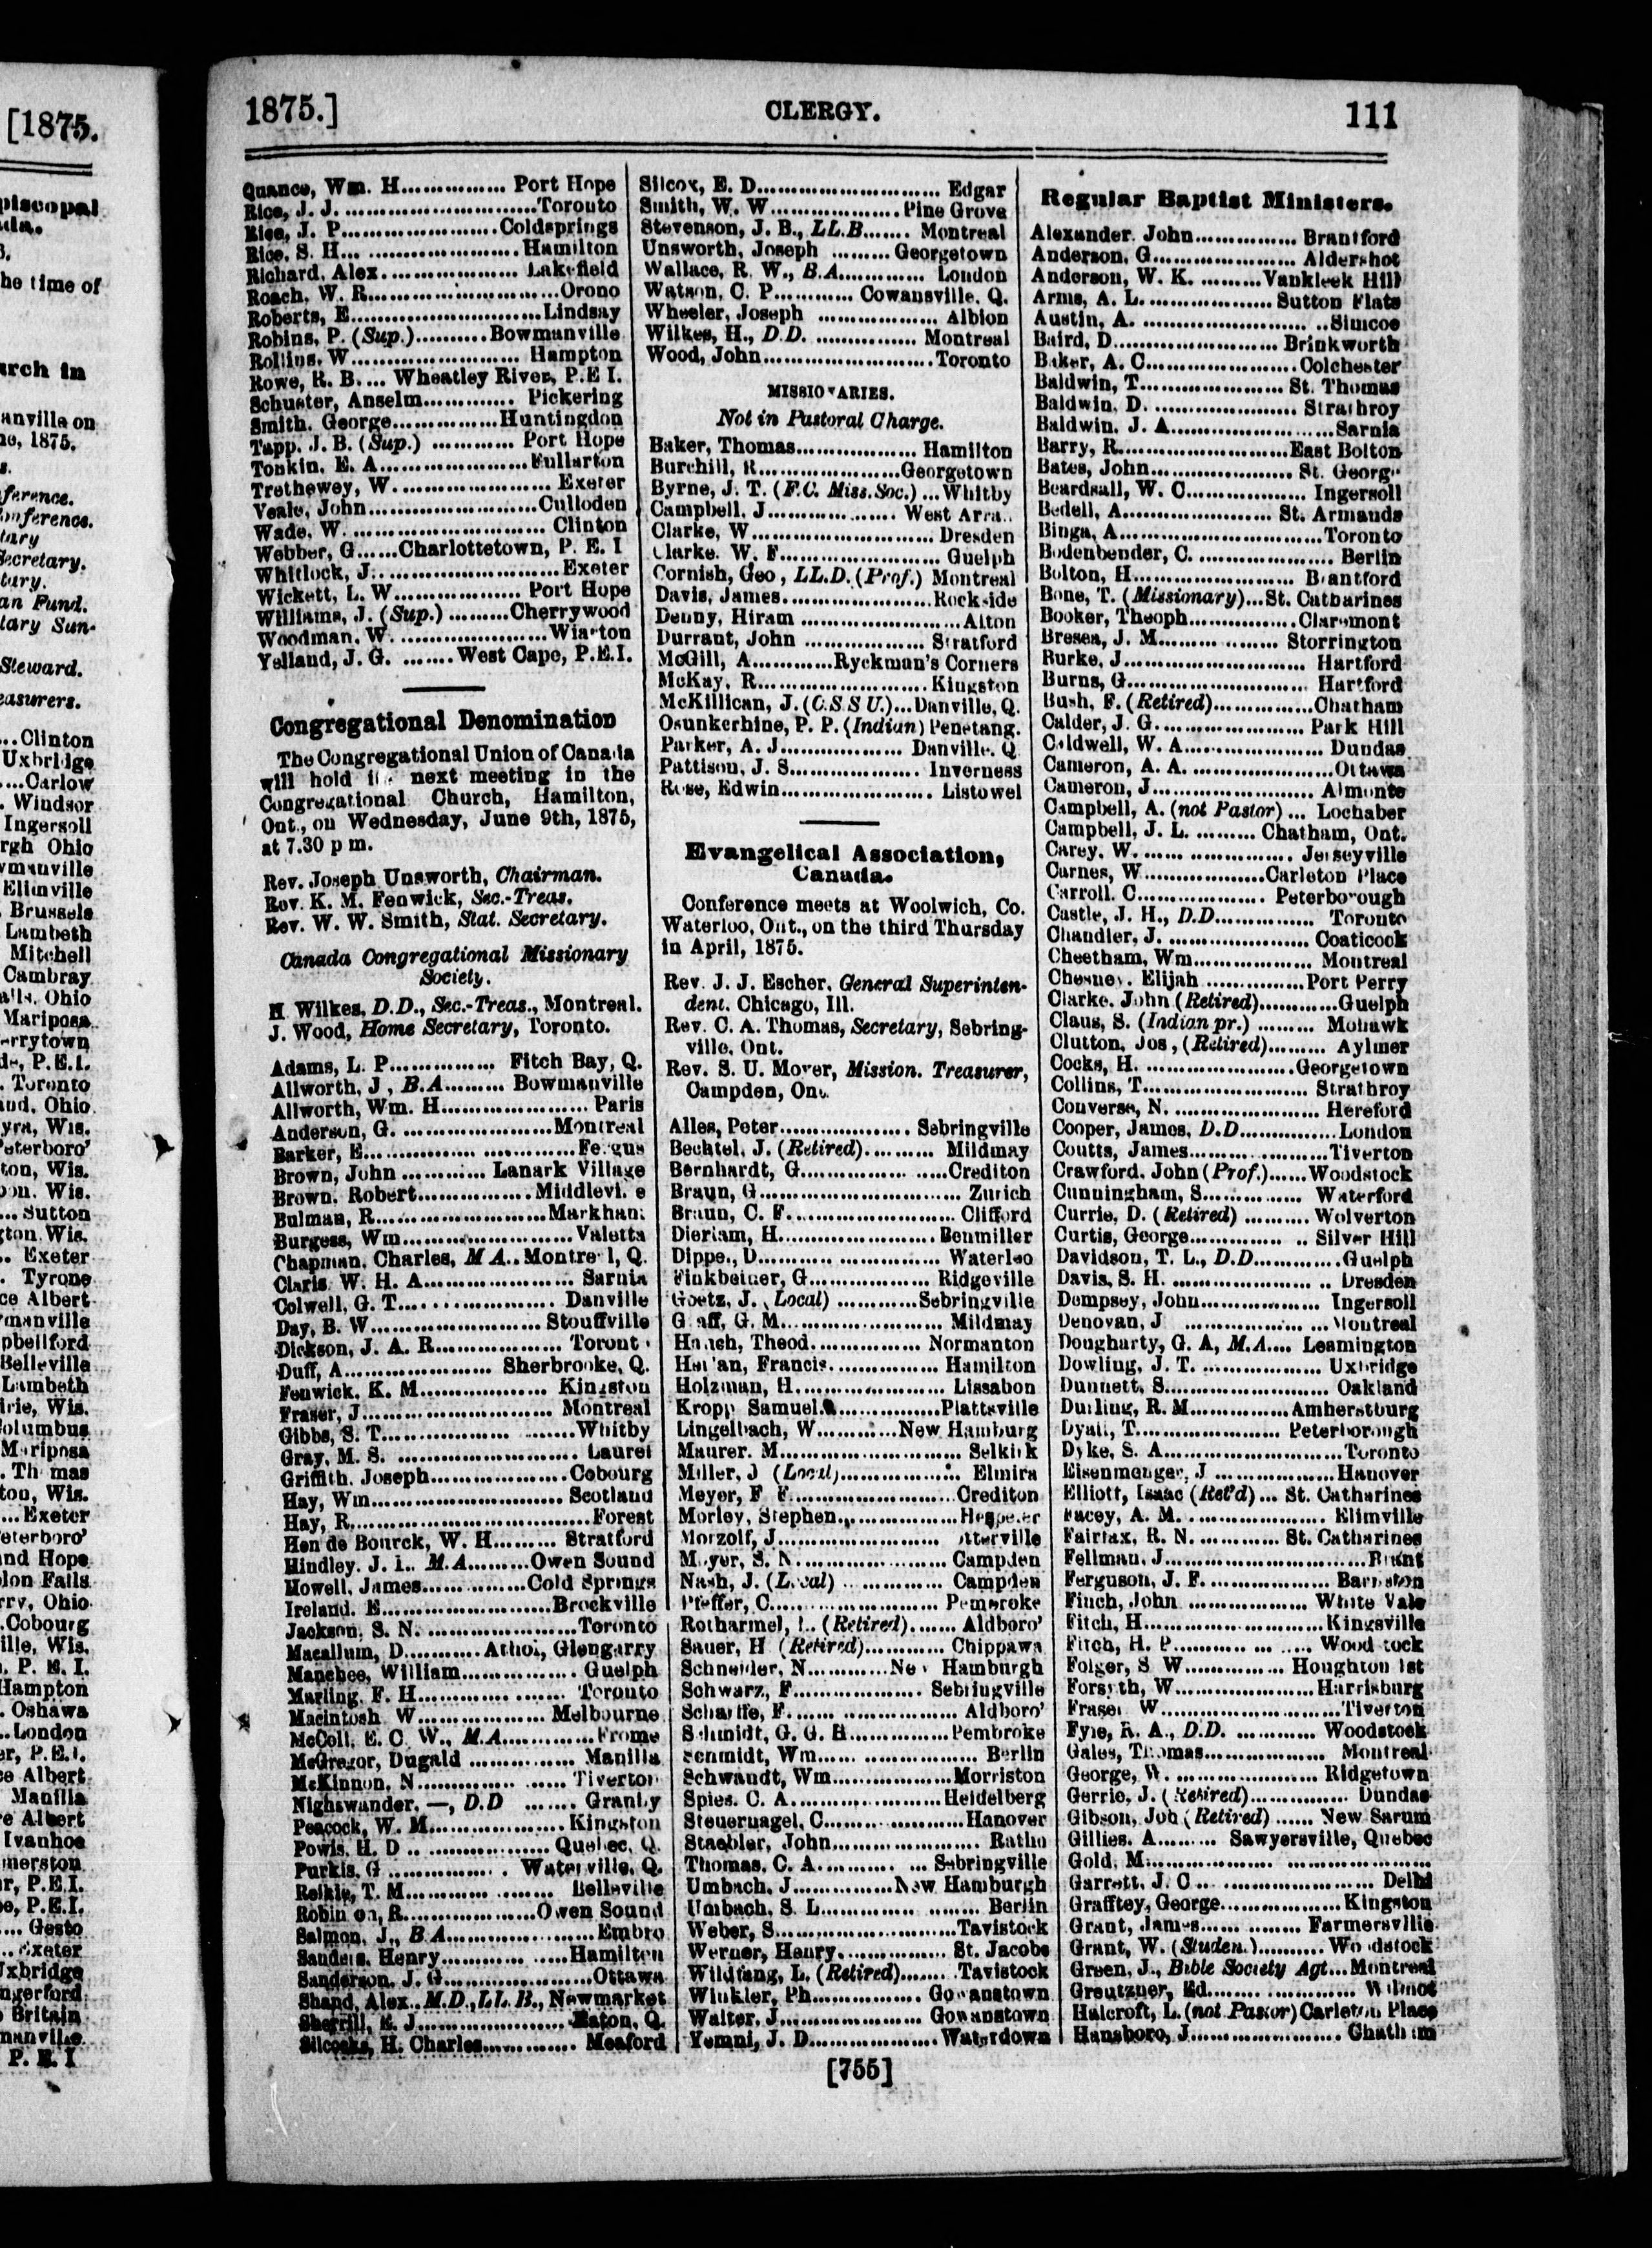 [1875.
piscopal
he time of
rch in
anville on
ne, 1875.
ference.
onference.
tary
Secretary.
tary.
an Fund.
tary Sun-
Steward.
easurers.
...Clinton
Uxbridge
....Carlow
. Windsor
Ingersoll
rgh Ohio
wmanville
Elimville
. Brussels
Lambeth
Mitchell
Cambray
Ohio
Mariposa
rrytown
P.E.I.
. Toronto
and, Ohio
yra, Wis.
Peterboro'
ton, Wis.
on. Wis.
... Sutton
gton, Wis.
.. Exeter
. Tyrone
ce Albert
manville
pbellford
Belleville
Lambeth
irie, Wis.
Columbus
Mariposa
. Thomas
ton, Wis.
...Exeter
eterboro'
and Hope
lon Falls
rry, Ohio
.Cobourg
ille, Wis.
, P. E. I.
Hampton
. Oshawa
..London
er, P.E.I.
ce Albert
Manilla
e Albert
Ivanhoe
merston
r, P.E.I.
e, P.E.I.
.... Gesto
.. Exeter
Uxbridge
ngerford
Britain
manville
P. E. I
1875.] CLERGY. 111
Quance, Wm. H............... Port Hope
Rice, J. J. ...........................Toronto
Rice, J. P.......................Coldsprings
Rice, S. H... .......................Hamilton
Richard, Alex.................... Lakefield
Roach, W. R............................Orono
Roberts, E............................Lindsay
Robins, P. (Sup.)..........Bowmanville
Rollins, W......................... Hampton
Rowe, R. B.... Wheatley River, P.E I.
Schuster, Anselm............. Pickering
Smith, George...............Huntingdon
Tapp, J. B. (Sup.) ............ Port Hope
Tonkin, E. A......................Fullarton
Trethewey, W........................ Exeter
Veale, John.........................Culloden
Wade, W. ............................ Clinton
Webber, G......Charlottetown, P. E. I
Whitlock, J...........................Exeter
Wickett, L. W.................... Port Hope
Williams, J. (Sup.) .........Cherrywood
Woodman, W. .......................Wiarton
Yelland, J. G. ........West Cape, P.E.I.
Congregational Denomination
The Congregational Union of Canada
will hold its next meeting in the
Congregational Church, Hamilton,
Ont., on Wednesday, June 9th, 1875,
at 7.30 p m.
Rev. Joseph Unsworth, Chairman.
Rev. K. M. Fenwick, Sec.-Treas.
Rev. W. W. Smith, Stat. Secretary.
Canada Congregational Missionary
Society.
H Wilkes, D.D., Sec.-Treas., Montreal.
J. Wood, Home Secretary, Toronto.
Adams, L. P................ Fitch Bay, Q.
Allworth, J , B.A......... Bowmanville
Allworth, Wm. H...................... Paris
Anderson, G. .......................Montreal
Barker, E................ ..............Fergus
Brown, John ............ Lanark Village
Brown, Robert.................Middleville
Bulman, R..........................Markham
Burgess, Wm..........................Valetta
Chapman, Charles, M A..Montreal, Q.
Claris, W. H. A....................... Sarnia
Colwell, G. T......................... Danville
Day, B. W.......................... Stouffville
Dickson, J. A. R.................... Toronto
Duff, A...................... Sherbrooke, Q.
Fenwick, K. M................... Kingston
Fraser, J............................. Montreal
Gibbs, S. T............................Whitby
Gray, M. S. .......................... Laurel
Griffith, Joseph.....................Cobourg
Hay, Wm............................. Scotland
Hay, R....................................Forest
Hen de Bourck, W. H......... Stratford
Hindley, J. I., M.A.........Owen Sound
Howell, James................Cold Springs
Ireland, E.........................Brockville
Jackson, S. N. .......................Toronto
Macallum, D...........Athol, Glengarry
Manchee, William................. Guelph
Marling, F. H........................ Toronto
Macintosh W................... Melbourne
McColl, E. C. W., M.A..............Frome
McGregor, Dugald ................ Manilla
McKinnon, N...................... Tiverton
Nighswander, —, D.D ........ Granby
Peacock, W. M.....................Kingston
Powis, H. D .. .................. Quebec, Q.
Purkis, G ................ . Waterville, Q.
Reikie, T. M...................... Belleville
Robinson, R....................Owen Sound
Salmon, J., B A.......................Embro
Sanders, Henry....................Hamilton
Sanderson, J. G......................Ottawa
Shand, Alex., M.D., LL.B., Newmarket
Sherrill, E. J...................... Eaton, Q.
Silcocks, H. Charles.............. Meaford
Silcox, E. D............................ Edgar
Smith, W. W....................Pine Grove
Stevenson, J. B., LL.B....... Montreal
Unsworth, Joseph ......... Georgetown
Wallace, R. W., B.A............. London
Watson, C. P............ Cowansville, Q.
Wheeler, Joseph .................. Albion
Wilkes, H., D.D. ................ Montreal
Wood, John.........................Toronto
MISSIONARIES.
Not in Pastoral Charge.
Baker, Thomas.................. Hamilton
Burchill, R.....................Georgetown
Byrne, J. T. (F.C. Miss. Soc.) ... Whitby
Campbell, J................... West Arra..
Clarke, W........................... Dresden
Clarke, W. F......................... Guelph
Cornish, Geo , LL.D. (Prof.) Montreal
Davis, James......................Rockside
Denny, Hiram .......................Alton
Durrant, John .................. Stratford
McGill, A............Ryckman's Corners
McKay, R......................... Kingston
McKillican, J. (C.S S U.)...Danville, Q.
Osunkerhine, P. P. (Indian) Penetang.
Parker, A. J................... Danville, Q
Pattison, J. S................... Inverness
Rose, Edwin...................... Listowel
Evangelical Association,
Canada.
Conference meets at Woolwich, Co.
Waterloo, Ont., on the third Thursday
in April, 1875.
Rev. J. J. Escher, General Superinten-
dent, Chicago, Ill.
Rev. C. A. Thomas, Secretary, Sebring-
ville, Ont.
Rev. S. U. Moyer, Mission. Treasurer,
Campden, Ont.
Alles, Peter.................... Sebringville
Bechtel, J. (Retired).......... Mildmay
Bernhardt, G......................Crediton
Braun, G.............................. Zurich
Braun, C. F......................... Clifford
Dierlam, H........................Benmiller
Dippe., D........................... Waterloo
Finkbeiner, G................... Ridgeville
Goetz, J. (Local) ............Sebringville
Graff, G. M......................... Mildmay
Hauch, Theod................. Normanton
Halan, Francis................ Hamilton
Holzman, H....................... Lissabon
Kropp Samuel.................Plattsville
Lingelbach, W............New Hamburg
Maurer, M........................... Selkirk
Miller, J (Local)................ Elmira
Meyer, F F.........................Crediton
Morley, Stephen..................Hespeler
Morzolf, J........................ Otterville
Moyer, S. N....................... Campden
Nash, J. (Local) ............... Campden
Pfeffer, C......................... Pembroke
Rotharmel, L. (Retired)....... Aldboro'
Sauer, H (Retired)............ Chippawa
Schneider, N............New Hamburgh
Schwarz, F................... Sebringville
Scharffe, F........................ Aldboro'
Schmidt, G. G. H...............Pembroke
Schmidt, Wm........................ Berlin
Schwandt, Wm..................Morriston
Spies, C. A......................Heidelberg
Steuernagel, C.....................Hanover
Staebler, John...................... Ratho
Thomas, C. A............ ... Sebringville
Umbach, J...............New Hamburgh
Umbach, S. L................ ........ Berlin
Weber, S...........................Tavistock
Werner, Henry................ St. Jacobs
Wildfang, L. (Retired)........ Tavistock
Winkler, Ph................. Gowanstown
Walter, J...................... Gowanstown
Yemni, J. D....................Waterdown
Regular Baptist Ministers.
Alexander, John............... Brantford
Anderson, G..................... Aldershot
Anderson, W. K. .........Vankleek Hill
Arms, A. L................... Sutton Flats
Austin, A. .......................... ..Simcoe
Baird, D......................... Brinkworth
Baker, A. C.......................Colchester
Baldwin, T...................... St. Thomas
Baldwin, D. ..................... Strathroy
Baldwin, J. A..........................Sarnia
Barry, R.........................East Bolton
Bates, John..................... St. George
Beardsall, W. C................... Ingersoll
Bedell, A...................... St. Armands
Binga, A..............................Toronto
Bodenbender, C. ..................... Berlin
Bolton, H........................ Brantford
Bone, T. (Missionary)...St. Catharines
Booker, Theoph................Claremont
Bresea, J. M................... Storrington
Burke, J........................... Hartford
Burns, G............................ Hartford
Bush, F. (Retired)...............Chatham
Calder, J. G....................... Park Hill
Caldwell, W. A..................... Dundas
Cameron, A. A. .....................Ottawa
Cameron, J........................ Almonte
Campbell, A. (not Pastor) ... Lochaber
Campbell, J. L. ......... Chatham, Ont.
Carey, W. ........................ Jerseyville
Carnes, W..................Carleton Place
Carroll, C.................... Peterborough
Castle, J. H., D.D............... Toronto
Chandler, J. ..................... Coaticook
Cheetham, Wm................... Montreal
Chesney, Elijah ..............Port Perry
Clarke, John (Retired)............Guelph
Claus, S. (Indian pr.) ......... Mohawk
Clutton, Jos , (Retired)......... Aylmer
Cocks, H. ......................Georgetown
Collins, T......................... Strathroy
Converse, N. ..................... Hereford
Cooper, James, D.D...............London
Coutts, James......................Tiverton
Crawford, John (Prof.)......Woodstock
Cunningham, S............... Waterford
Currie, D. (Retired) .......... Wolverton
Curtis, George.............. .. Silver Hill
Davidson, T. L., D.D.............Guelph
Davis, S. H. ...................... .. Dresden
Dempsey, John.................. Ingersoll
Denovan, J ......................Montreal
Dougharty, G. A, M.A.... Leamington
Dowling, J. T. .................. Uxbridge
Dunnett, S......................... Oakland
Durling, R. M...............Amherstburg
Dyall, T..................... Peterborough
Dyke, S. A...........................Toronto
Eisenmenger, J ...................Hanover
Elliott, Isaac (Ret'd)... St. Catharines
Facey, A. M....................... Elimville
Fairfax, R. N. ............St. Catharines
Fellman, J...............................Brant
Ferguson, J. F.................. Barnston
Finch, John ..................... White Vale
Fitch, H...........................Kingsville
Fitch, H. P............ ... ..... Woodstock
Folger, S W............... Houghton 1st
Forsyth, W.....................Harrisburg
Fraser W...........................Tiverton
Fyfe, R. A., D.D. ............ Woodstock
Gales, Thomas.................. Montreal
George, W. ..................... Ridgetown
Gerrie, J. (Retired)............... Dundas
Gibson, Job (Retired)...... New Sarum
Gillies, A......... Sawyersville, Quebec
Gold, M................... .....................
Garrett, J. C .. ........................ Delhi
Grafftey, George..................Kingston
Grant, James............... Farmersville
Grant, W. (Studen.)..........Woodstock
Green, J., Bible Society Agt...Montreal
Greutzner, Ed..................... Wilmot
Halcroft, L. (not Pastor) Carleton Place
Hansboro, J....................... Chatham
[755]